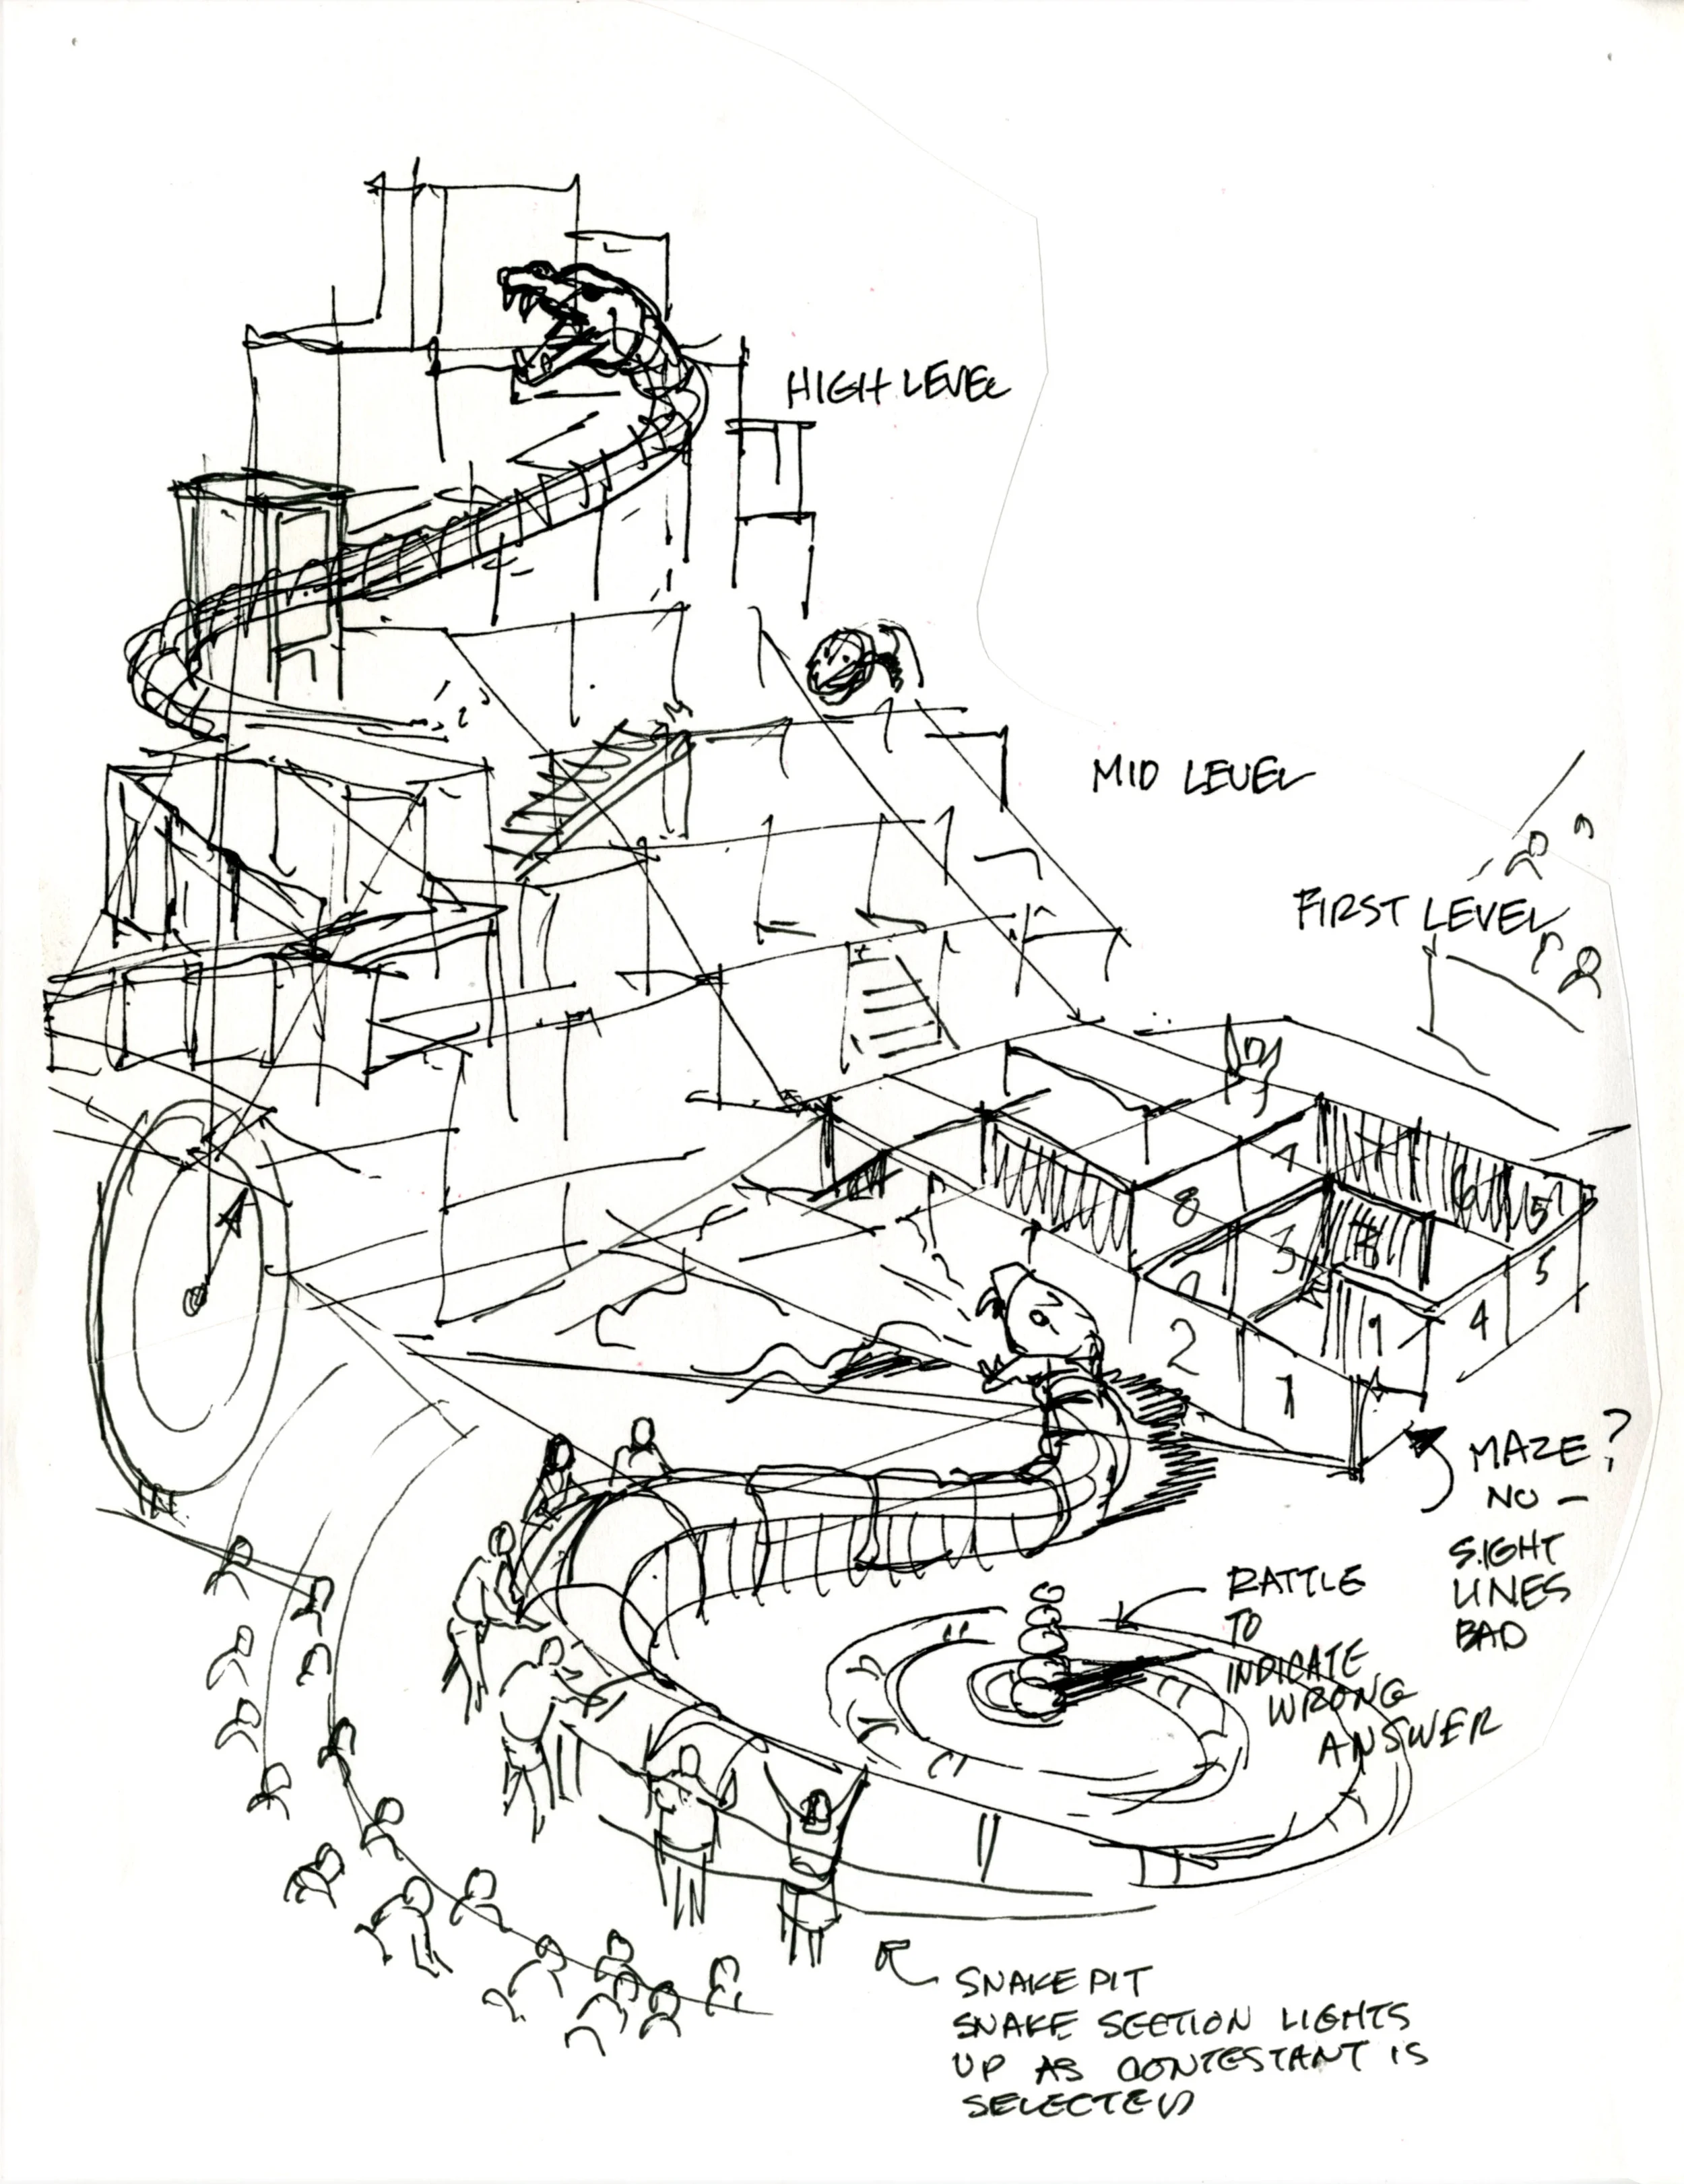 HIGH LEVEL
MID LEVEL
FIRST LEVEL
7
7
6
5
8
3
8
5
2
1
1
4
MAZE?
NO –
SIGHT
LINES
BAD
RATTLE
TO
INDICATE
WRONG
ANSWER
SNAKE PIT
SNAKE SECTION LIGHTS
UP AS CONTESTANT IS
SELECTED